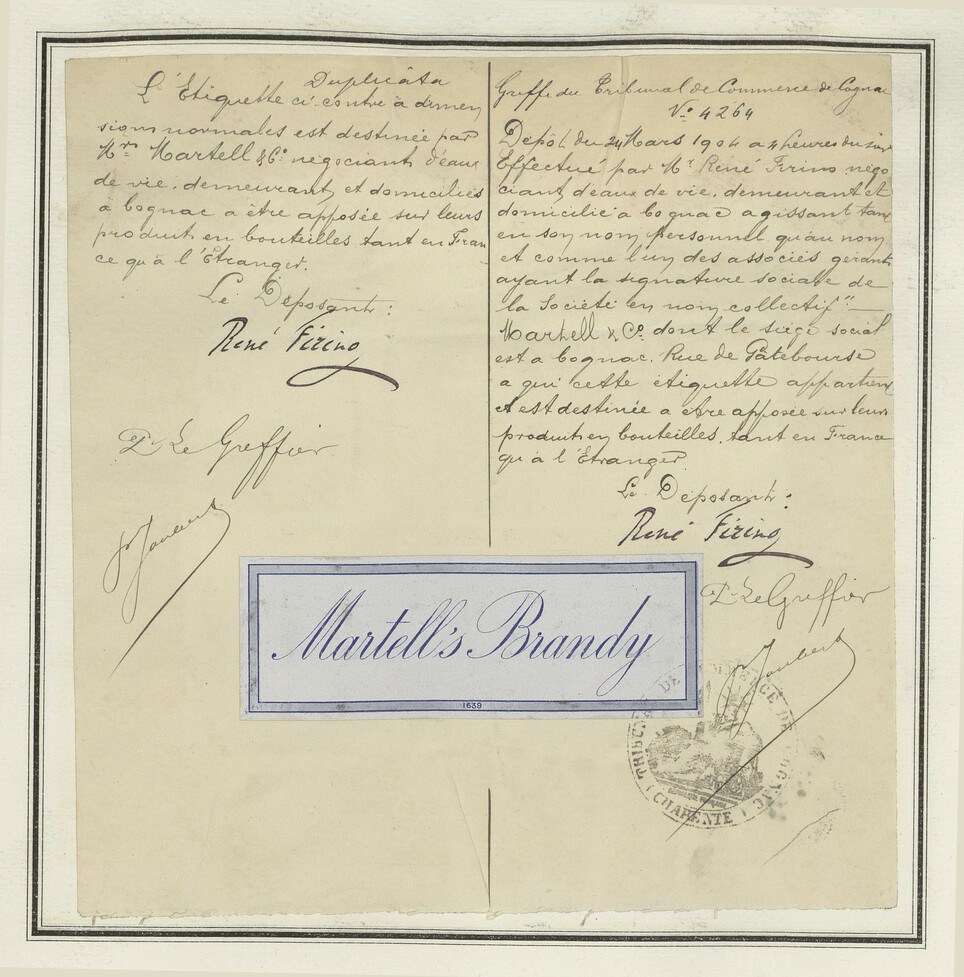 Duplicata
L'Etiquette ci-contre à dimen
sions normales est destinée par
Mrs Martell & Co négociants d'eaux
de vie, demeurant et domiciliés
à Cognac a être apposée sur leurs
produits en bouteilles tant en Fran
ce qu'à l'Etranger.
Le Déposant:
René Firino
Pr Le Greffier
Joubert
Greffe du Tribunal de Commerce de Cognac
No 4264
Dépôt du 24 Mars 1904 a 4 heures du soir
Effectué par Mr René Firino négo
ciant d'eaux de vie, demeurant et
domicilié à Cognac agissant tant
en son nom personnel qu'au nom
et comme l'un des associés gérants
ayant la signature sociale de
la Société en nom collectif "
Martell & Co. dont le siège social
est a Cognac, Rue de Gâtebourse
a qui cette étiquette appartient
et est destinée a être apposée sur leurs
produits en bouteilles, tant en France
qu'à l'Etranger
Le Déposant:
René Firino
Pr Le Greffier
Joubert
Martell's Brandy
1639
TRIBUNAL DE COMMERCE DE COGNAC
(CHARENTE)